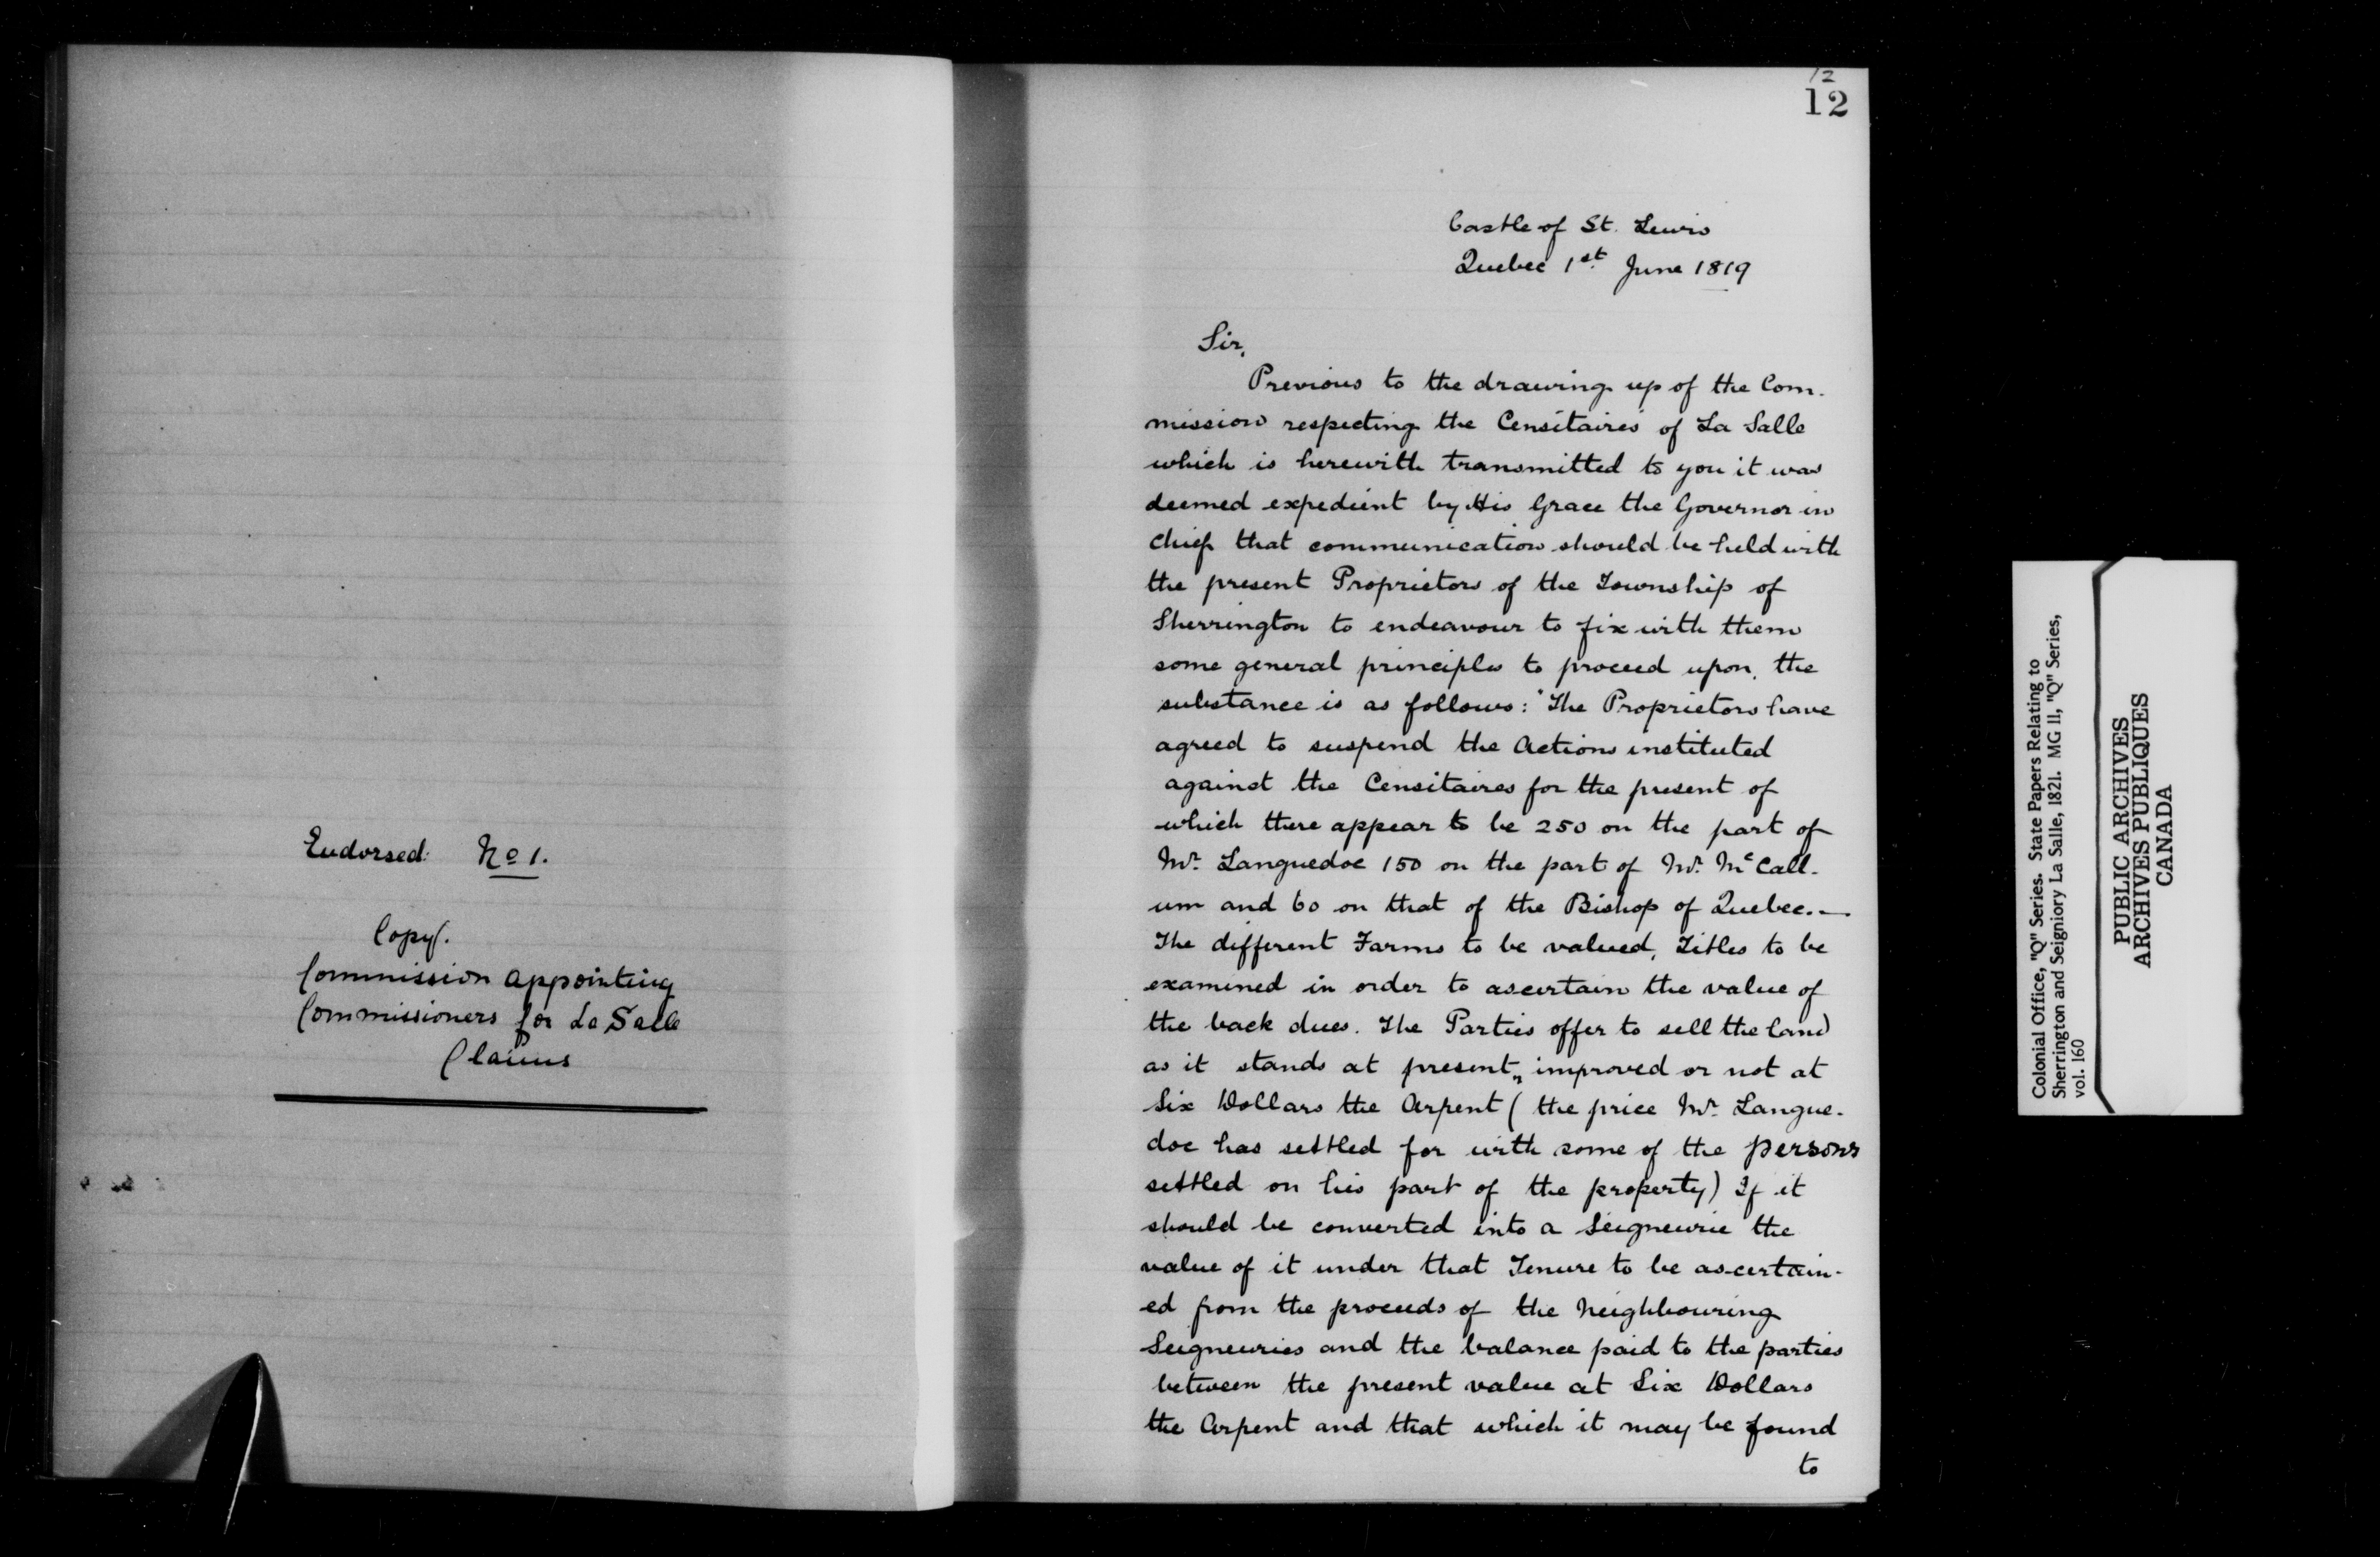 Endorsed: No 1.
Copy.
Commission appointing
Commissioners for La Salle
Claims
12
12
Castle of St. Lewis
Quebec 1st June 1819
Sir,
Previous to the drawing up of the Com-
mission respecting the Censitaires of La Salle
which is herewith transmitted to you it was
deemed expedient by His Grace the Governor in
Chief that communication should be held with
the present Proprietors of the Township of
Sherrington to endeavour to fix with them
some general principles to proceed upon, the
substance is as follows: "The Proprietors have
agreed to suspend the Actions instituted
against the Censitaires for the present of
which there appear to be 250 on the part of
Mr. Languedoc 150 on the part of Mr. McCall-
um and 60 on that of the Bishop of Quebec. —
The different Farms to be valued, Titles to be
examined in order to ascertain the value of
the back dues. The Parties offer to sell the land
as it stands at present, improved or not at
Six Dollars the Arpent (the price Mr. Langue-
doc has settled for with some of the persons
settled on his part of the property) If it
should be converted into a Seigneurie the
value of it under that Tenure to be ascertain-
ed from the proceeds of the Neighbouring
Seigneuries and the balance paid to the parties
between the present value at Six Dollars
the Arpent and that which it may be found
to
Colonial Office, "Q" Series. State Papers Relating to
Sherrington and Seigniory La Salle, 1821. MG 11, "Q" Series,
vol. 160
PUBLIC ARCHIVES
ARCHIVES PUBLIQUES
CANADA